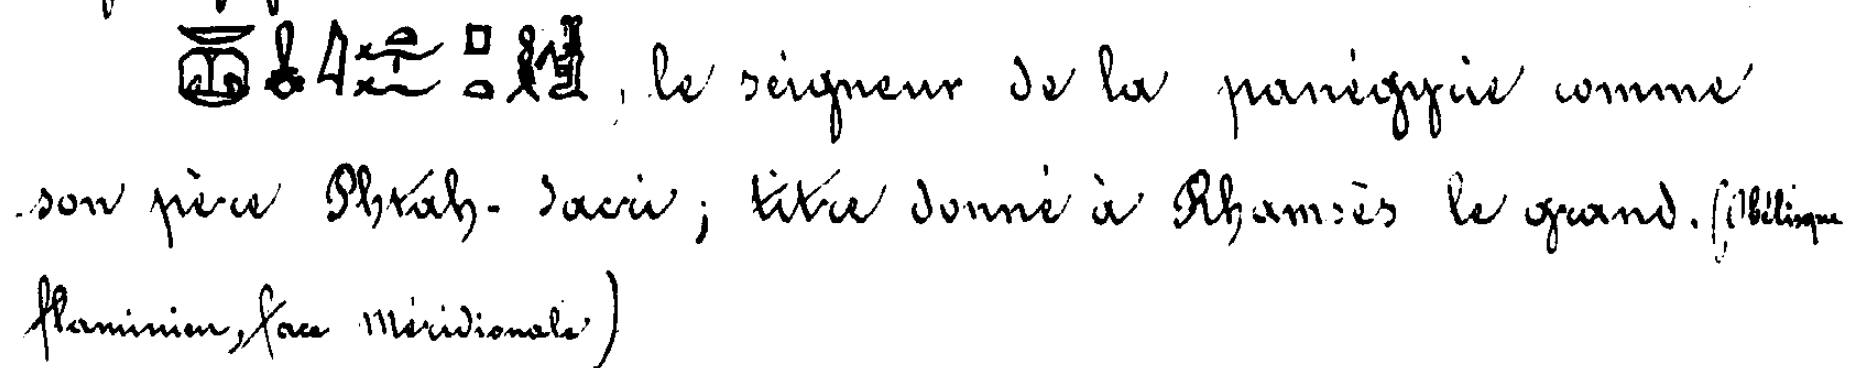 , le seigneur de la panégyrie comme
son père Phtah-Sacri; titre donné à Rhamsès le grand. (Obélisque
flaminien, face méridionale)